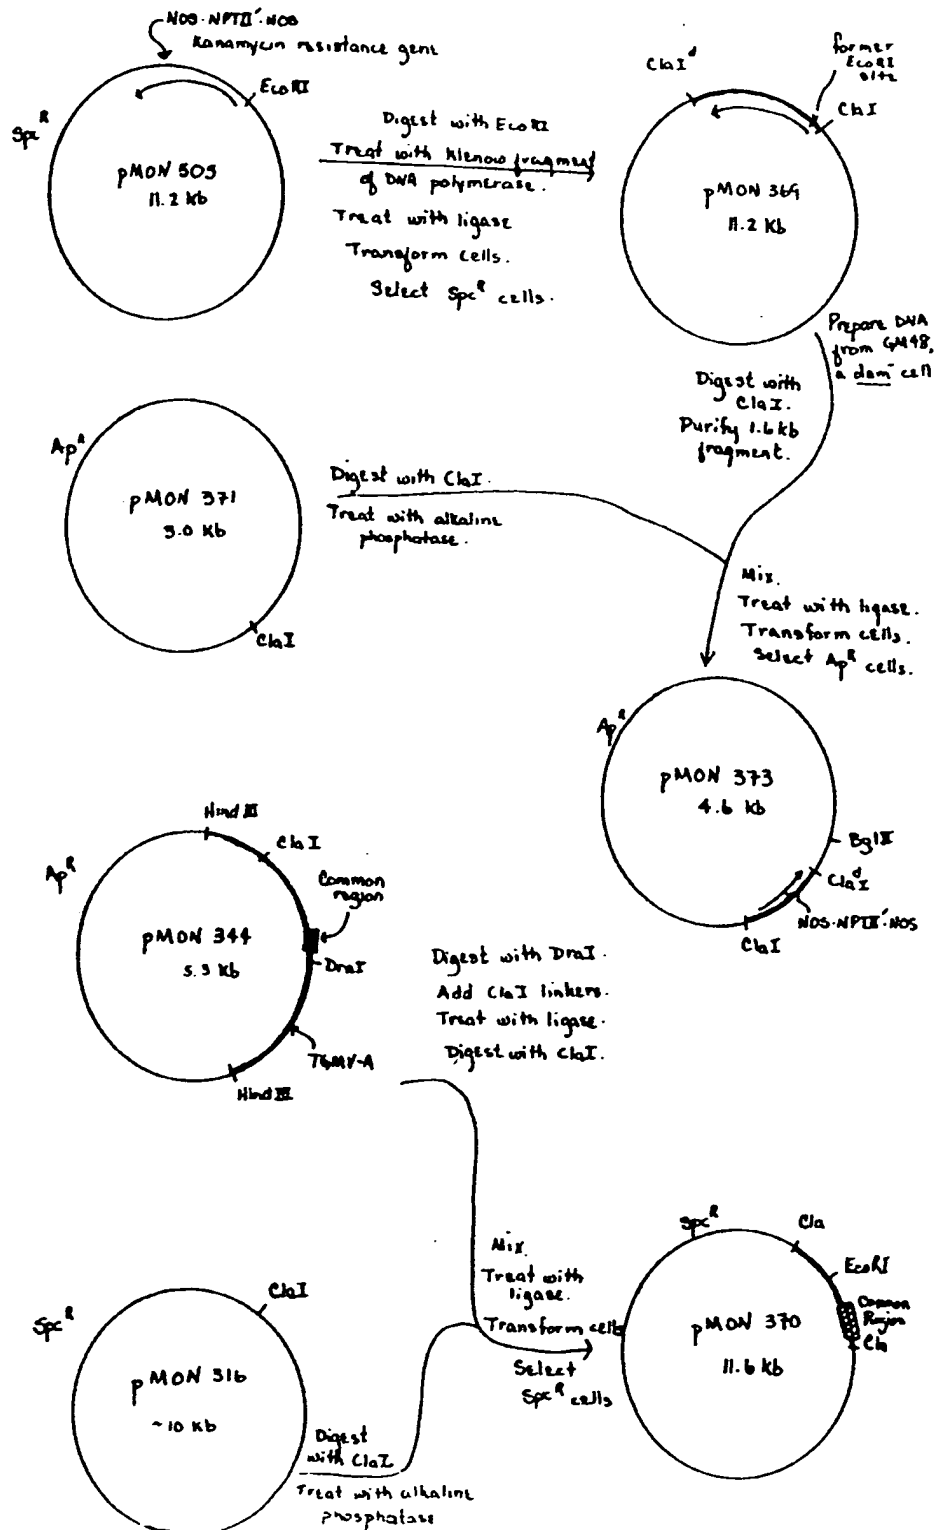 NOS·NPTII'·NOS
Kanamycin resistance gene
EcoRI
Spc^R
pMON 505
11.2 Kb
Digest with EcoRI
Treat with Klenow fragment
of DNA polymerase.
Treat with ligase
Transform cells.
Select Spc^R cells.
ClaI^d
former
EcoRI
site
ClaI
pMON 369
11.2 Kb
Prepare DNA
from GM48,
a dam^- cell
Digest with
ClaI.
Purify 1.6 kb
fragment.
Ap^R
pMON 371
3.0 Kb
ClaI
Digest with ClaI.
Treat with alkaline
phosphatase.
Mix.
Treat with ligase.
Transform cells.
Select Ap^R cells.
Ap^R
pMON 373
4.6 Kb
BglII
Cla^dI
NOS·NPTII'·NOS
ClaI
Hind III
ClaI
Common
region
Ap^R
pMON 344
5.3 Kb
DraI
TGMV-A
Hind III
Digest with DraI.
Add ClaI linkers.
Treat with ligase.
Digest with ClaI.
ClaI
Spc^R
pMON 316
~10 Kb
Digest
with ClaI
Treat with alkaline
phosphatase
Mix.
Treat with
ligase.
Transform cells
Select
Spc^R cells
Spc^R
Cla
EcoRI
Common
Region
Cla
pMON 370
11.6 Kb